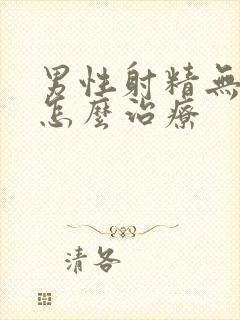 男性射精無
怎麼治療
清各